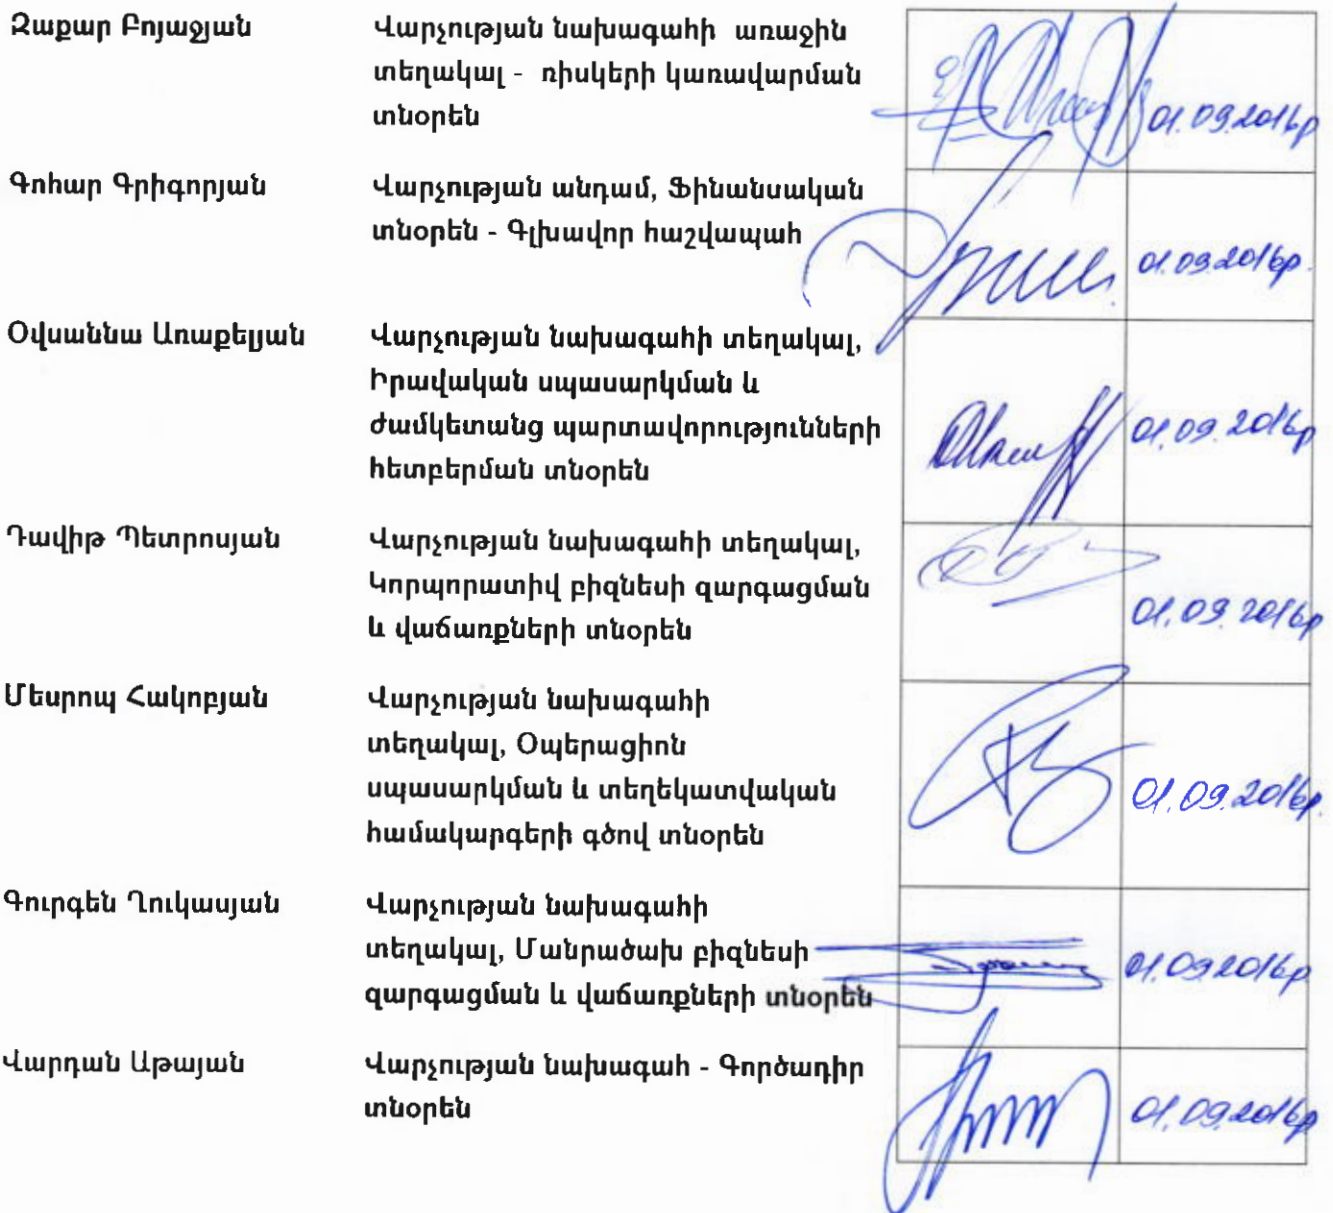 Զաքար Բոյաջյան
Վարչության նախագահի առաջին
տեղակալ - ռիսկերի կառավարման
տնօրեն
01.09.2016թ
Գոհար Գրիգորյան
Վարչության անդամ, Ֆինանսական
տնօրեն - Գլխավոր հաշվապահ
01.09.2016թ.
Օվսաննա Առաքելյան
Վարչության նախագահի տեղակալ,
Իրավական սպասարկման և
ժամկետանց պարտավորությունների
հետբերման տնօրեն
01.09.2016թ
Դավիթ Պետրոսյան
Վարչության նախագահի տեղակալ,
Կորպորատիվ բիզնեսի զարգացման
և վաճառքների տնօրեն
01.09.2016թ
Մեսրոպ Հակոբյան
Վարչության նախագահի
տեղակալ, Օպերացիոն
սպասարկման և տեղեկատվական
համակարգերի գծով տնօրեն
01.09.2016թ.
Գուրգեն Ղուկասյան
Վարչության նախագահի
տեղակալ, Մանրածախ բիզնեսի
զարգացման և վաճառքների տնօրեն
01.09.2016թ
Վարդան Աթայան
Վարչության նախագահ - Գործադիր
տնօրեն
01.09.2016թ